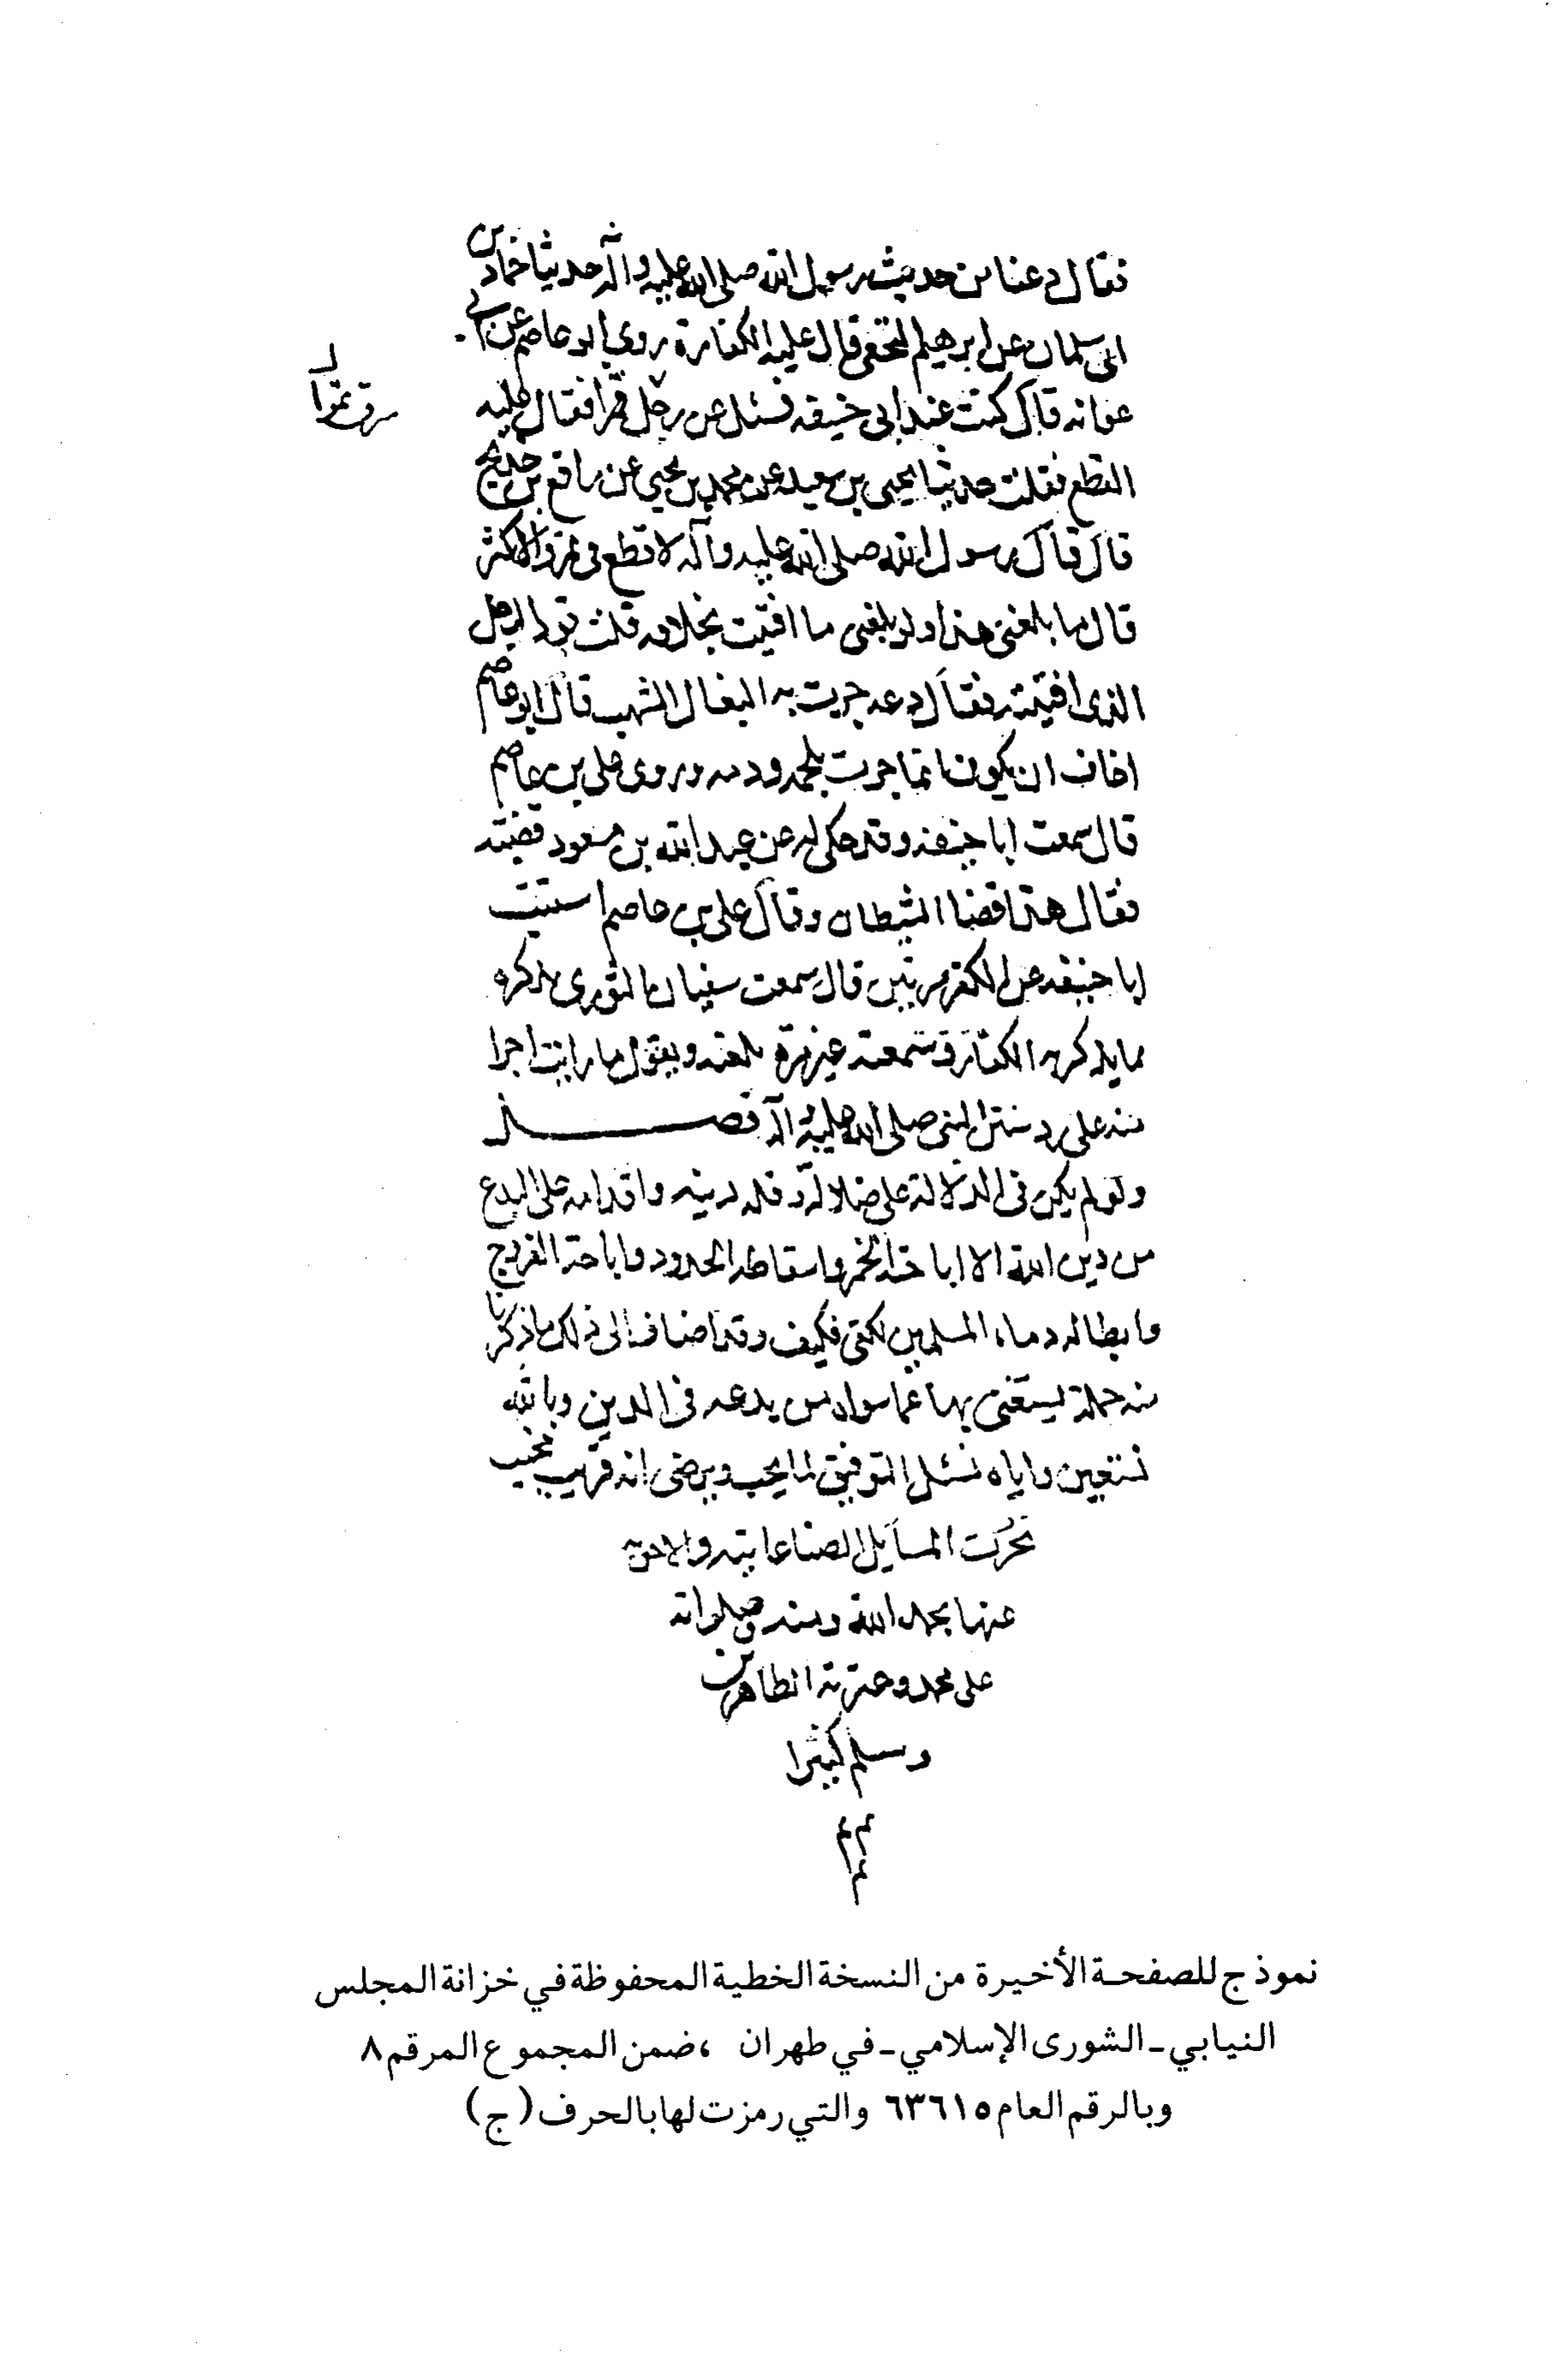 فقال دعنا من حديث رسول الله صلى الله عليه وآله حدثنا حماد بن
ابي سلمان عن ابرهيم النخعي قال عليه الكفارة روى ابو عاصم عن ابي
عوانه قال كنت عند ابي حنيفه فسئل عن رجل تمرا فقال عليه
سرق تمرا
القطع فقلت حدثنا يحيى بن سعيد عن محمد بن يحيى عن رافع بن خديج
قال قال رسول الله صلى الله عليه وآله لا قطع في ثمر ولا كثر
قال ما بلغني هذا ولو بلغني ما افتيت بخلافه قلت فرد الرجل
الذي افتيته فقال دعه جرت به البغال الشهب قال ابو عاصم
اخاف ان يكون انما جرت بلحمه ودمه وروى علي بن عاصم
قال سمعت ابا حنيفه وقد حكى له عن عبد الله بن مسعود قضيته
فقال هذا قضا الشيطان وقال علي بن عاصم استتيب
ابا حنيفه عن الكفر مرتين قال سمعت سفيان الثوري يذكره
بما يذكر به الكفار وسمعته غير مرة يلعنه ويقول ما رايت اجرا
منه على رد سنن النبي صلى الله عليه وآله فصل
ولو لم يكن في الدلالة على ضلالته وقله دينه واقدامه على البدع
من دين الله الا اباحته الخمر واسقاطه الحدود واباحته الفروج
وابطاله دماء المسلمين لكفى فكيف وقد اضاف الى ذلك ما ذكرنا
منه جملة يستغنى بها عما سواه من بدعه في الدين وبالله
نستعين واياه نسئل التوفيق لما يحب ويرضى انه قريب مجيب
نجزت المسايل الصاغانيه والاجوبه
عنها بحمد الله ومنه وصلواته
على محمد وعترته الطاهرين
وسلم كثيرا
م م م
نموذج للصفحة الأخيرة من النسخة الخطية المحفوظة في خزانة المجلس
النيابي ـ الشورى الإسلامي ـ في طهران ، ضمن المجموع المرقم ٨
وبالرقم العام ٦٣٦١٥ والتي رمزت لها بالحرف (ج)